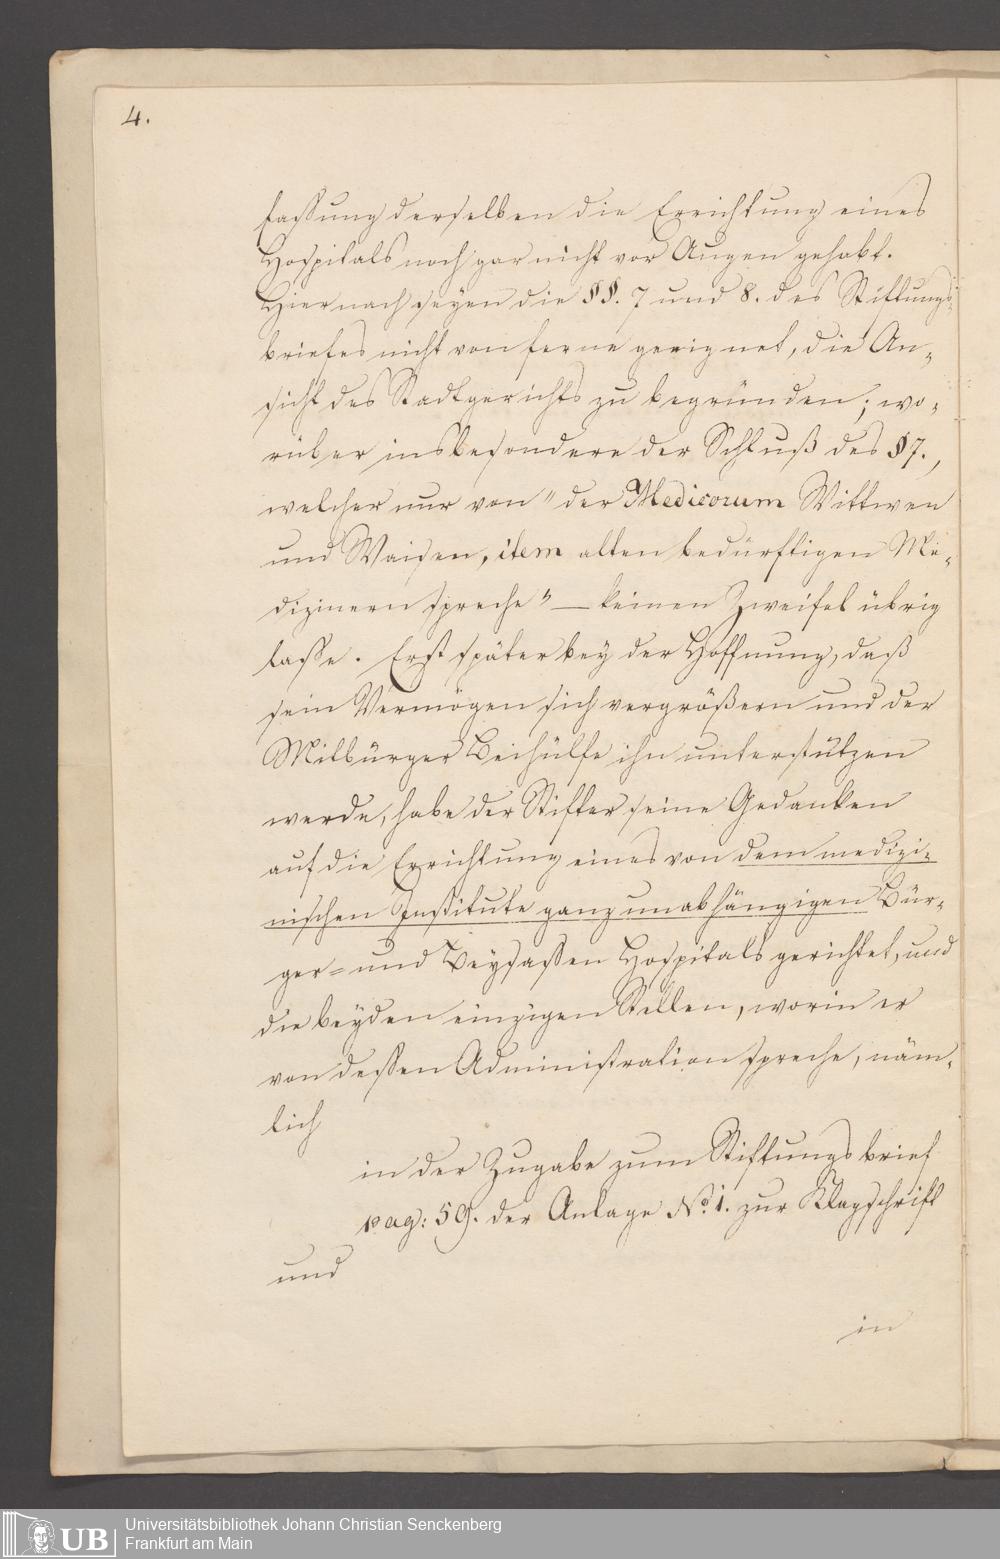 4.
fassung derselben die Errichtung eines
Hospitals noch gar nicht vor Augen gehabt.
Hiernach seyen die §§. 7 und 8. des Stiftungs-
briefes nicht von ferne geeignet, die An-
sicht des Stadtgerichts zu begründen; wo-
rüber insbesondere der Schluß des § 7.,
welcher nur von "der Medicorum Wittwen
und Waisen, item alten bedürftigen Me-
dizinern spreche" — keinen Zweifel übrig
lasse. Erst später bey der Hoffnung, daß
sein Vermögen sich vergrößern und der
Mitbürger Beihülfe ihn unterstützen
werde, habe der Stifter seine Gedanken
auf die Errichtung eines von dem medizi-
nischen Institute ganz unabhängigen Bür-
ger- und Beysassen Hospitals gerichtet, und
die beyden einzigen Stellen, worin er
von dessen Administration spreche, näm-
lich
in der Zugabe zum Stiftungsbrief
pag: 59. der Anlage No. 1. zur Klagschrift
und
in
UB
Universitätsbibliothek Johann Christian Senckenberg
Frankfurt am Main